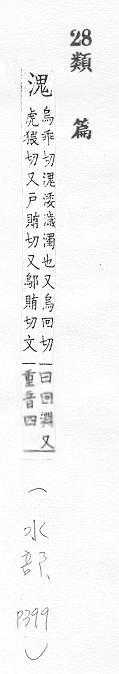 28 類篇
溾
烏乖切溾涹濊濁也又烏回切一曰回淵又
虎猥切又戶賄切又鄔賄切文一重音四
(水部 P399)